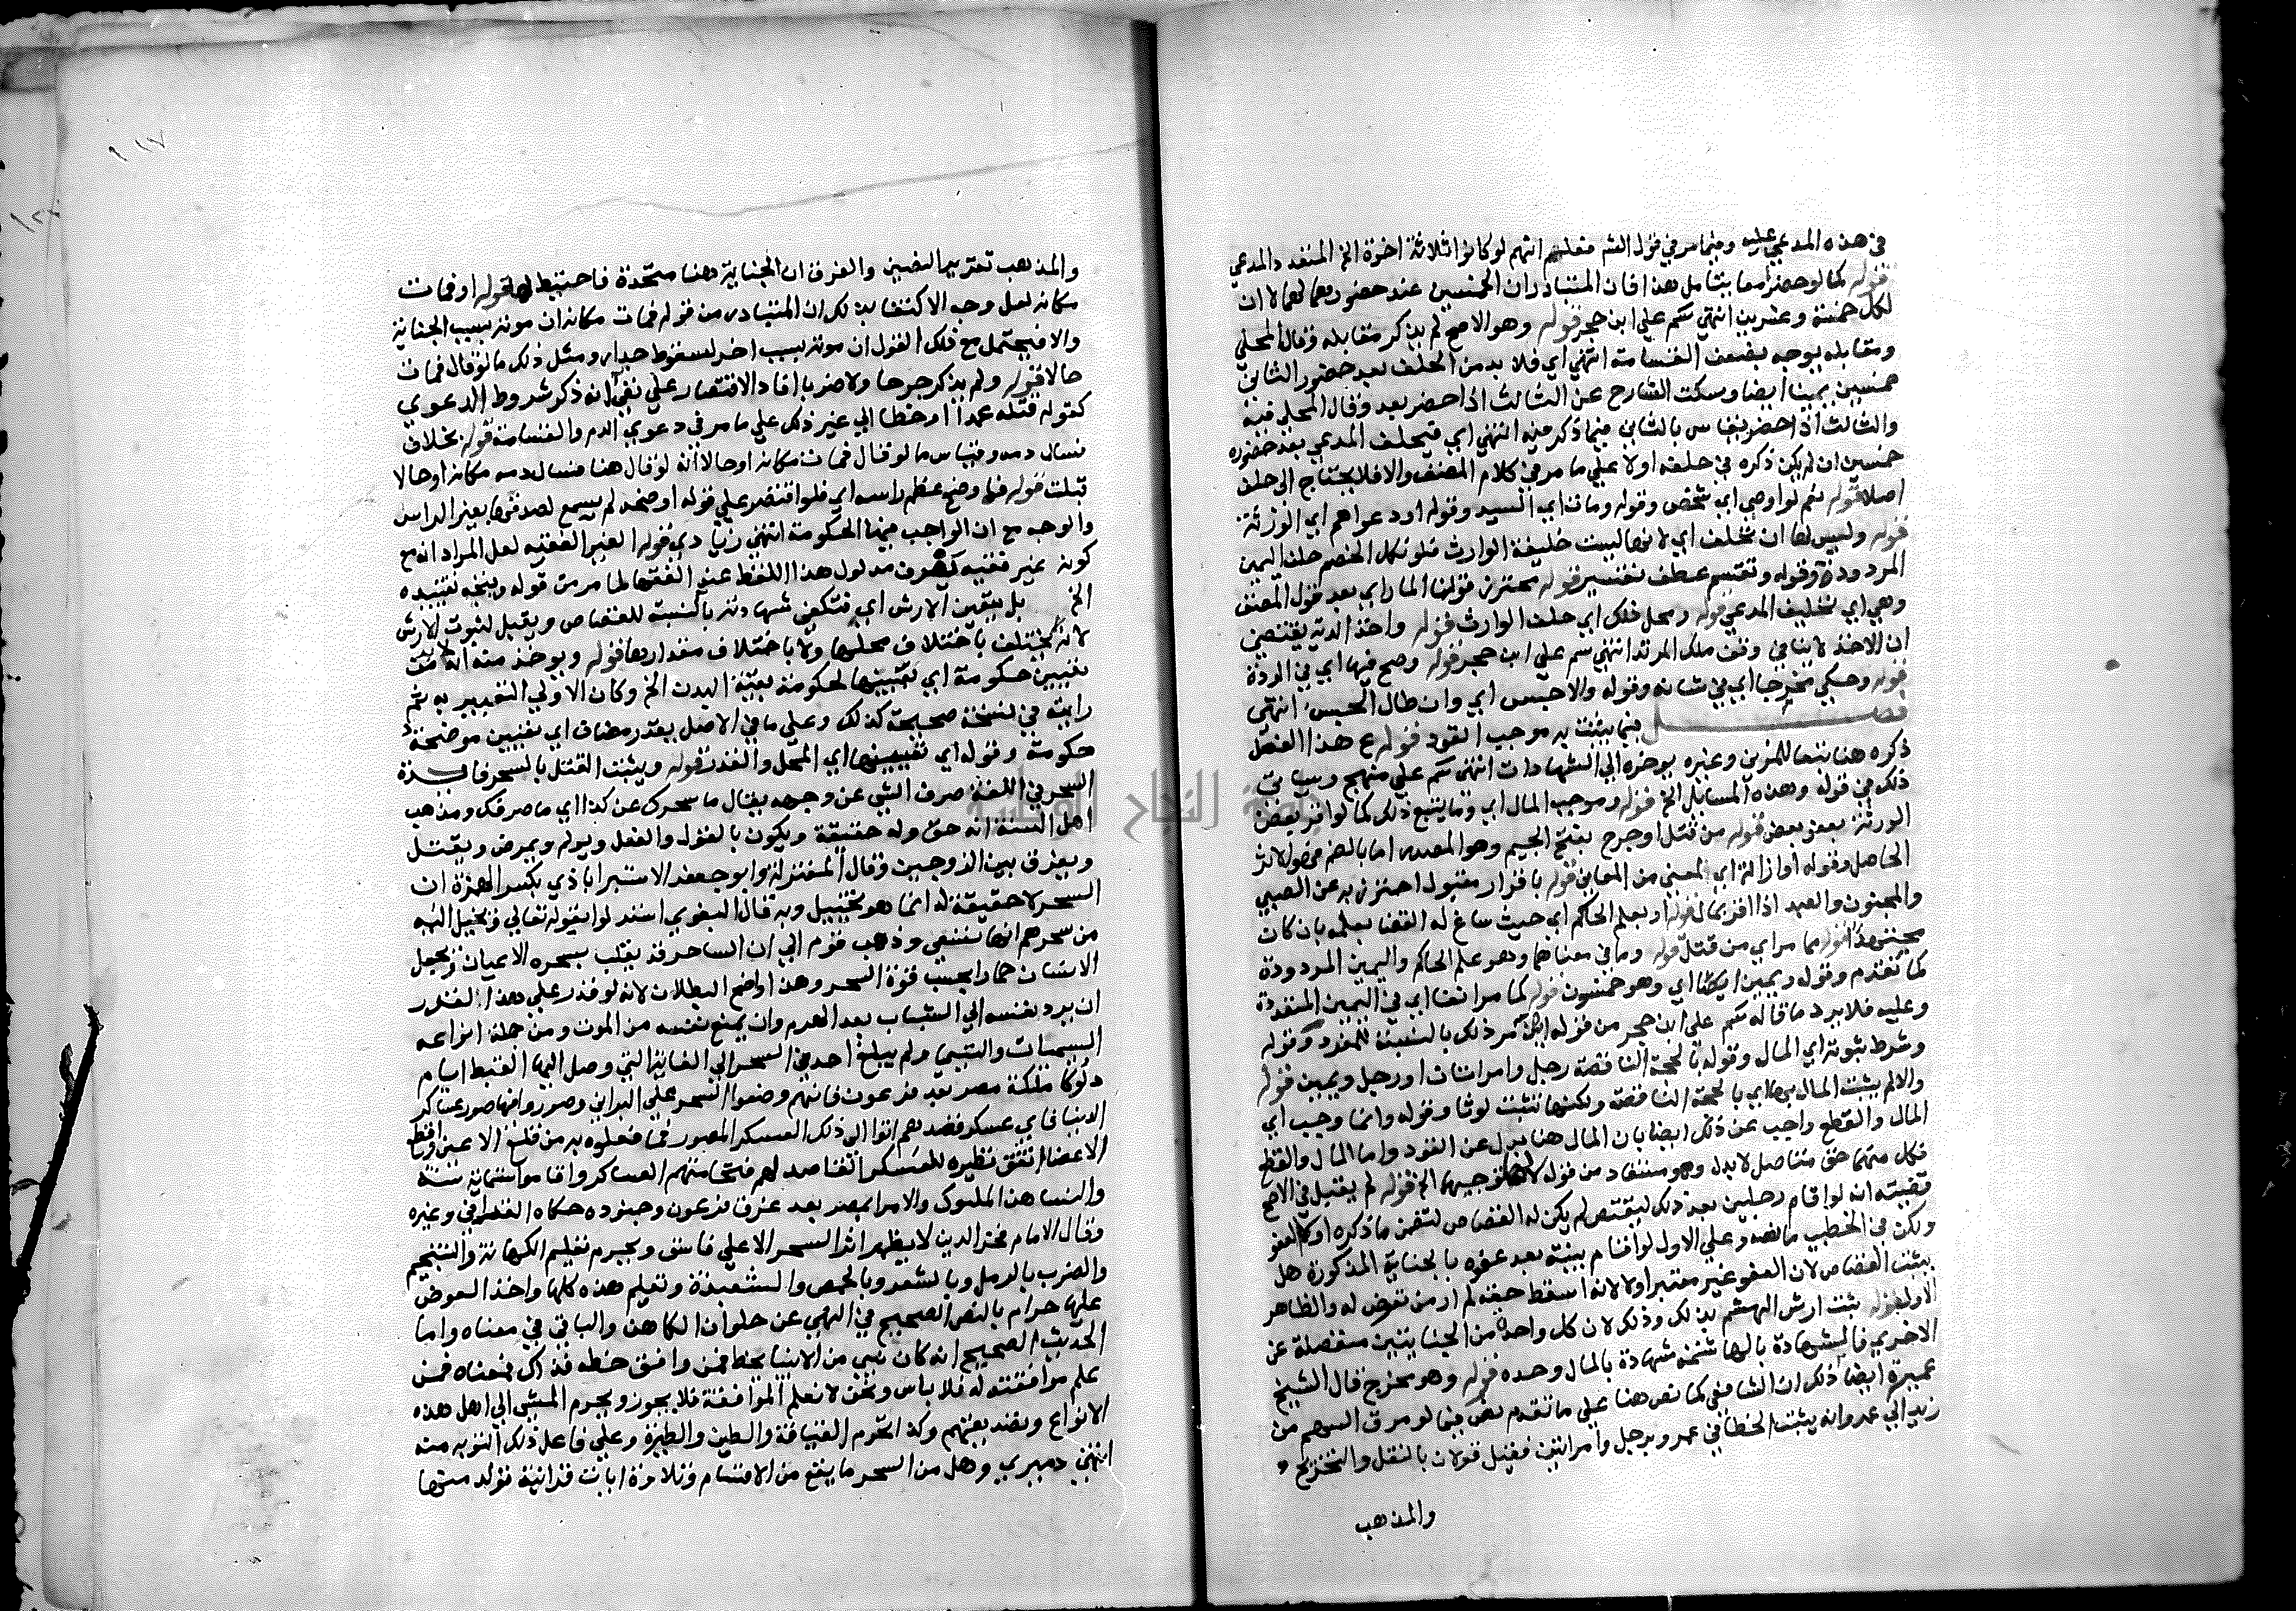 في هذه المدعي عليه وفيما مر في قول الشم فعليهم انهم لو كانوا ثلاثة اخوة الخ المتعدد المدعي
قوله كما لو حضرا معا يتامل هذا فان المتبادر ان الخمسين عند حضورهما لهما لا ان
لكل خمسة وعشرين انتهي سم علي ابن حجر قوله وهو الاصح لم يذكر مقابله وقال المحلي
ومقابله يوجه بضعف القسامة انتهي اي فلا بد من الحلف بعد حضور الثاني
خمسين يمينا ايضا وسكت الشارح عن الثالث اذا حضر بعد وقال المحلي فيه
والثالث اذا حضر يقاس بالثاني فيما ذكر فيه انتهي اي فيحلف المدعي بعد حضوره
خمسين ان لم يكن ذكره في حلفه اولا علي ما مر في كلام المصنف والا فلا يحتاج الي حلف
اصلا قوله نعم لو اوصي اي شخص وقوله ومات اي السيد وقوله او دعواهم اي الورثة
قوله وليس لها ان تحلف اي لانها ليست خليفة الوارث فلو نكل الخصم حلف اليمين
المردودة وقوله وتقسم عطف تفسير قوله محترز قولنا المار اي بعد قول المصنف
وهي اي تحليف المدعي قوله ومحل ذلك اي حلف الوارث قوله واخذ الدية يقتضي
ان الاخذ لا ينافي وقف ملك المرتد انتهي سم علي ابن حجر قوله وصح فيها اي في الردة
قوله وحكي تخريجا اي في شانه وقوله والا حبس اي وان طال الحبس انتهي
فصل فيما يثبت به موجب القود قوله ع هذا الفصل
ذكره هنا تبعا للمزني وغيره يوخره الي الشهادات انتهي سم علي منهج وسياتي
ذلك في قوله وهذه المسايل الخ قوله وموجب المال اي وما يتبع ذلك كما لو اقر بعض
الورثة بعفو بعض قوله من قتل او جرح بفتح الجيم وهو المصدر اما بالضم فهو الاثر
الحاصل وقوله او ازالة اي لمعني من المعاني قوله باقرار مقبول احترز به عن الصبي
والمجنون والعبد اذا اقر بمال قوله او بعلم الحاكم اي حيث ساغ له القضا بعلمه بان كان
مجتهدا قوله مما مر اي من قتل قوله وما في معناهما وهو علم الحاكم واليمين المردودة
كما تقدم وقوله ويمين ايضا اي وهو خمسون قوله كما مر انفا اي في اليمين المتعددة
وعليه فلا يرد ما قاله سم علي ابن حجر من قوله مر ذلك بالنسبة للمفرد وقوله
وشرط ثبوته اي المال وقوله بالحجة الناقصة رجل وامراتان او رجل ويمين قوله
والا لم يثبت المال بها اي بالحجة الناقصة ولكنها تثبت لوثا وقوله وانما وجب اي
المال والقطع واجب عن ذلك ايضا بان المال هنا بدل عن القود واما المال والقطع
فكل منهما حق متاصل لا بدل وهو مستفاد من قول توجيهها الخ قوله لم يقبل في الاصح
قضيته انه لو اقام رجلين بعد ذلك ليقتص لم يكن له القصاص لتضمن ما ذكره اولا العفو
ولكن في الخطيب ما نصه وعلي الاول لو اقام بينة بعد عفوه بالجناية المذكورة هل
يثبت القصاص لان العفو غير معتبر اولا لانه اسقط حقه لم ار من تعرض له والظاهر
الاول قوله يثبت ارش الهشم بذلك وذلك لان كل واحدة من الجنايتين منفصلة عن
الاخري فالشهادة بالهاشمة شهادة بالمال وحده قوله وهو مخرج قال الشيخ
عميرة ايضا ذلك ان الشافعي كما نص هنا علي ما تقدم نص فيما لو مرق السهم من
زيد الي عمرو انه يثبت الخطا في عمرو برجل وامراتين فقيل قولان بالنقل والتخريج
والمذهب
والمذهب تقرير النصين والفرق ان الجناية هنا متحدة فاحتيط لها قوله او فمات
مكانه لعل وجه الاكتفا بذلك ان المتبادر من قوله فمات مكانه ان موته بسبب الجناية
والا فيحتمل مع ذلك القول ان موته بسبب اخر لسقوط جدار ومثل ذلك ما لو قال فمات
حالا قوله ولم يذكر جرحا ولا ضربا افاد الاقتصار علي نفي انه ذكر شروط الدعوي
كقوله قتله عمدا او خطا الي غير ذلك علي ما مر في دعوي الدم والقسامة قوله بخلاف
فسال دمه وقياس ما لو قال فمات مكانه او حالا انه لو قال هنا فسال دمه مكانه او حالا
قبلت قوله فاوضح عظم راسه اي فلو اقتصر علي قوله اوضحه لم يسمع لصدقها بغير الراس
والوجه مع ان الواجب فيها الحكومة انتهي زيادي قوله لغير الفقيه لعل المراد انه مع
كونه غير فقيه يعرف مدلول هذا اللفظ عند الفقها لما مر من قوله ويتجه تقييده
الخ بل يتعين الارش اي فتكفي شهادته بالنسبة للقصاص ويقبل لثبوت الارش
لانه لا يختلف باختلاف محلها ولا باختلاف مقدارها قوله ويوخذ منه انه لا بد من
تعيين حكومة اي تعيينها لحكومة بقية البدن الخ وكان الاولي التعبير به ثم
رايته في نسخة صحيحة كذلك وعلي ما في الاصل يقدر مضاف اي تعيين موضحة
حكومة وقوله اي تعيينها اي المحل والقدر قوله ويثبت القتل بالسحر فايدة
السحر في اللغة صرف الشي عن وجهه يقال ما سحرك عن كذا اي ما صرفك ومذهب
اهل السنة انه حق وله حقيقة ويكون بالقول والفعل ويولم ويمرض ويقتل
ويفرق بين الزوجين وقال المعتزلة وابو جعفر الاستراباذي بكسر الهمزة ان
السحر لا حقيقة له انما هو تخييل وبه قال البغوي استدلوا بقوله تعالي يخيل اليه
من سحرهم انها تسعي وذهب قوم الي ان الساحر قد يقلب بسحره الاعيان ويجعل
الانسان حمارا بحسب قوة السحر وهذا واضح البطلان لانه لو قدر علي هذا القدر
ان يرد نفسه الي الشباب بعد الهرم وان يمنع نفسه من الموت ومن جملة انواعه
السيميات والسيميا ولم يبلغ احد في السحر الي الغاية التي وصل اليها القبط ايام
دلوكا ملكة مصر بعد فرعون فانهم وضعوا السحر علي البرابي وصوروا فيها صور عساكر
الدنيا فاي عسكر قصدهم اتوا الي ذلك العسكر المصور فما فعلوه به من قلع الاعين وقطع
الاعضا اتفق نظيره للعسكر القاصد لهم فتحامتهم العساكر واقاموا ستماية سنة
والنسا هن الملوك والامرا بمصر بعد غرق فرعون وجنوده حكاه القرافي وغيره
وقال الامام فخر الدين لا يظهر اثر السحر الا علي فاسق ويحرم تعليم الكهانة والتنجيم
والضرب بالرمل وبالشعر وبالحمص والشعبذة وتعليم هذه كلها واخذ العوض
عليها حرام بالنص الصحيح في النهي عن حلوان الكاهن والباقي في معناه واما
الحديث الصحيح انه كان نبي من الانبيا يخط فمن وافق خطه فذاك فمعناه فمن
علم موافقته له فلا باس ونحن لا نعلم الموافقة فلا يجوز ويحرم المشي الي اهل هذه
الانواع وتصديقهم وكذا تحرم القيافة والطين والطيرة وعلي فاعل ذلك التوبة منه
انتهي دميري وهل من السحر ما يقع من الاقسام وتلاوة ايات قرانية فولد منها